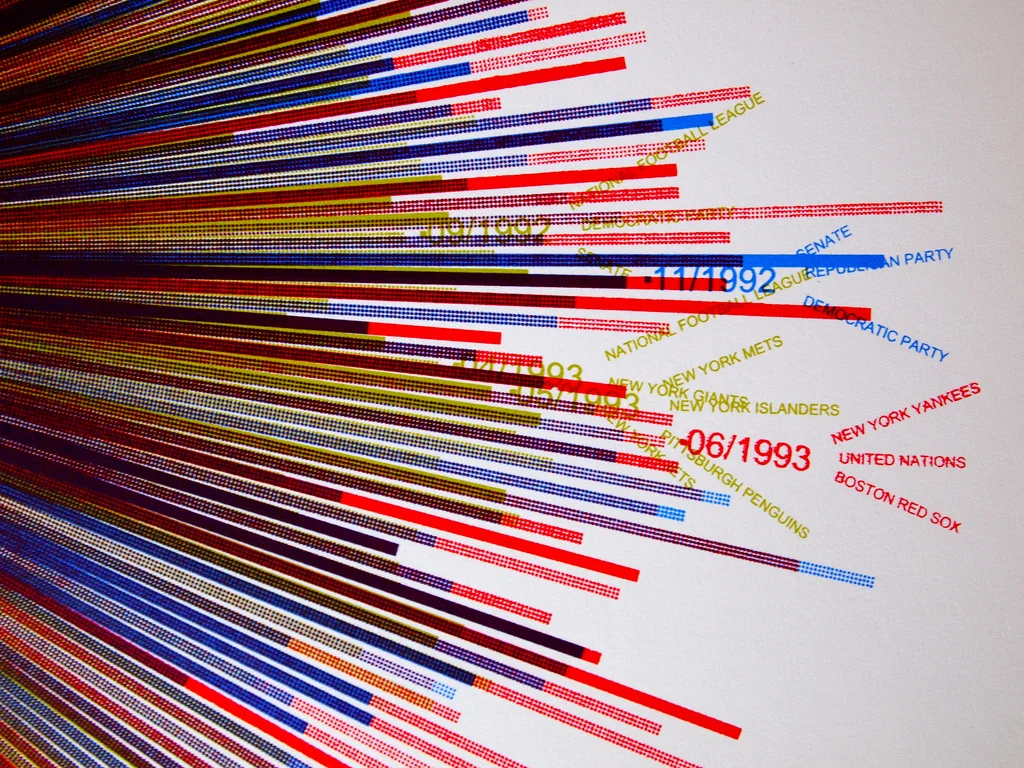 NATIONAL FOOTBALL LEAGUE
DEMOCRATIC PARTY
09/1992
SENATE
SENATE
REPUBLICAN PARTY
11/1992
DEMOCRATIC PARTY
NATIONAL FOOTBALL LEAGUE
NEW YORK METS
04/1993
NEW YORK GIANTS
05/1993
NEW YORK ISLANDERS
NEW YORK METS
PITTSBURGH PENGUINS
06/1993
NEW YORK YANKEES
UNITED NATIONS
BOSTON RED SOX